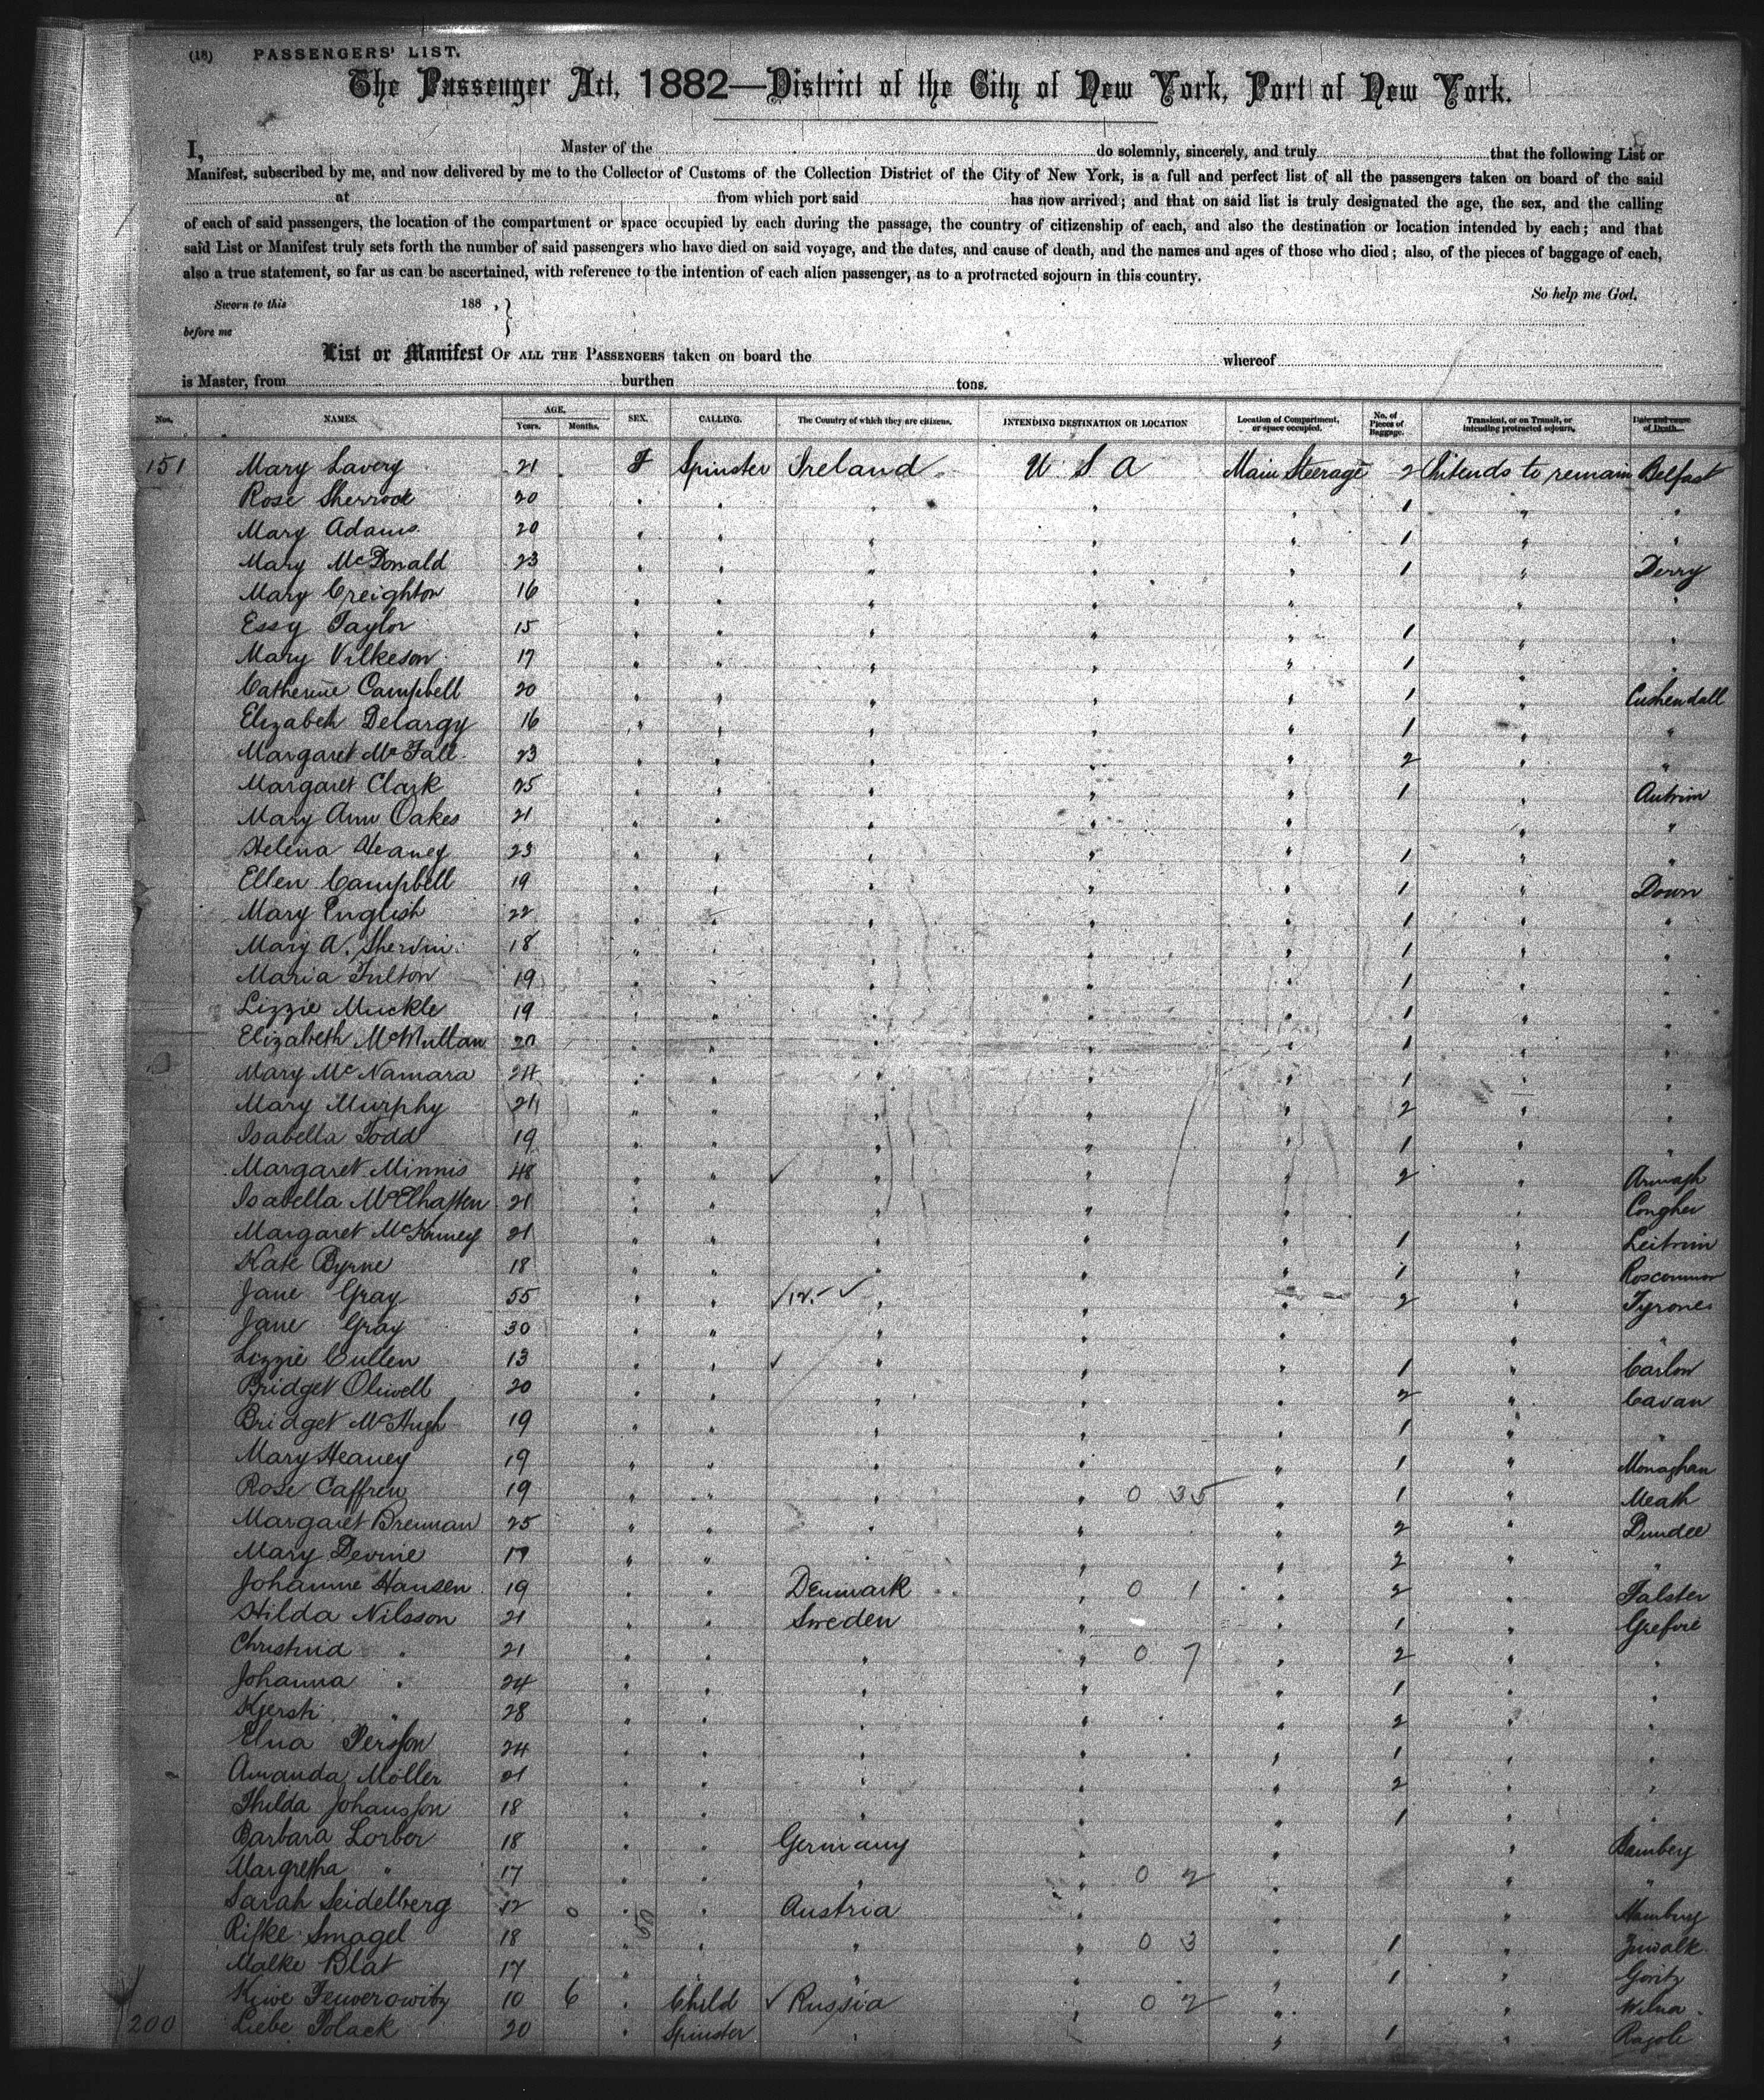 (18) PASSENGERS' LIST.
The Passenger Act, 1882—District of the City of New York, Port of New York.
I, Master of the do solemnly, sincerely, and truly that the following List or
Manifest, subscribed by me, and now delivered by me to the Collector of Customs of the Collection District of the City of New York, is a full and perfect list of all the passengers taken on board of the said
at from which port said has now arrived; and that on said list is truly designated the age, the sex, and the calling
of each of said passengers, the location of the compartment or space occupied by each during the passage, the country of citizenship of each, and also the destination or location intended by each; and that
said List or Manifest truly sets forth the number of said passengers who have died on said voyage, and the dates, and cause of death, and the names and ages of those who died; also, of the pieces of baggage of each,
also a true statement, so far as can be ascertained, with reference to the intention of each alien passenger, as to a protracted sojourn in this country.
Sworn to this 188 , } So help me God.
before me
List or Manifest OF ALL THE PASSENGERS taken on board the whereof
is Master, from burthen tons.
Nos. NAMES. AGE. Years. Months. SEX. CALLING. The Country of which they are citizens. INTENDING DESTINATION OR LOCATION Location of Compartment, or space occupied. No. of Pieces of Baggage. Transient, or on Transit, or intending protracted sojourn. Date and cause of Death.
151 Mary Lavery 21 F Spinster Ireland U S A Main Steerage 2 Intends to remain Belfast
Rose Sherrock 20 " " " " " 1 " "
Mary Adams 20 " " " " " 1 " "
Mary McDonald 23 " " " " " 1 " Derry
Mary Creighton 16 " " " " " " "
Essy Taylor 15 " " " " " 1 " "
Mary Vilkeson 17 " " " " " 1 " "
Catherine Campbell 20 " " " " " 1 " Cushendall
Elizabeh Delargy 16 " " " " " 1 " "
Margaret McFall 23 " " " " " 2 " "
Margaret Clark 25 " " " " " 1 " Antrim
Mary Ann Oakes 21 " " " " " " "
Helena Heaney 23 " " " " " 1 " "
Ellen Campbell 19 " " " " " 1 " Down
Mary English 22 " " " " " 1 " "
Mary A. 18 " " " " " 1 " "
Maria Fulton 19 " " " " " 1 " "
Lizzie Muckle 19 " " " " " 1 " "
Elizabeth McMullan 20 " " " " " 1 " "
Mary McNamara 24 " " " " " 1 " "
Mary Murphy 21 " " " " " 2 " "
Isabella Todd 19 " " " " " 1 " "
Margaret Minnis 48 " " ✓ " " " 2 " Armagh
Isabella 21 " " " " " "
Margaret 21 " " " " " 1 " Leitrim
Kate Byrne 18 " " " " " 1 " Roscommon
Jane Gray 55 " " ✓ ✓ " " " 2 " Tyrone
Jane Gray 30 " " " " " " "
Lizzie Cullen 13 " " ✓ " " " 1 " Carlow
Bridget Oliwell 20 " " " " " 2 " Cavan
Bridget McHugh 19 " " " " " 1 " "
Mary Heaney 19 " " " " " 1 " Monaghan
Rose Caffrey 19 " " " " 0 35 " 1 " Meath
Margaret Brennan 25 " " " " " 2 " Dundee
Mary Devine 19 " " " " " 2 " "
Johanne Hansen 19 " " Denmark " 0 1 " 2 " Falster
Hilda Nilsson 21 " " Sweden " " 1 "
Christina " 21 " " " " 0 7 " 2 " "
Johanna " 24 " " " " " 1 " "
Kjersti " 28 " " " " " 2 " "
Elna Persson 24 " " " " " 1 " "
Amanda Möller 21 " " " " " 2 " "
Thilda Johansson 18 " " " " " 1 " "
Barbara Lorber 18 " " Germany " " " Bamberg
Margretha " 17 " " " " 0 2 " " "
Sarah Seidelberg 12 0 " " Austria " " " Hamburg
Rifke Smagel 18 " " " " 0 3 " 1 "
Malke Blat 17 " " " " " 1 "
10 6 " Child ✓ Russia " 0 2 " " Wilna
200 Liebe Polack 20 " Spinster " " " 1 "